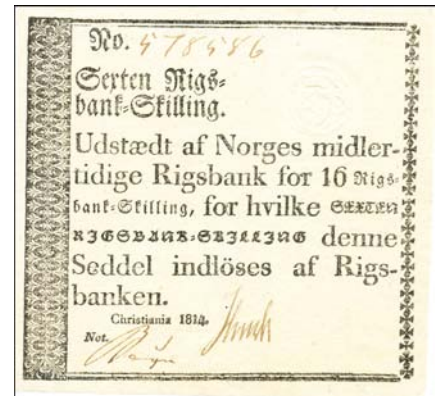 No. 578586
Sexten Rigs=
bank=Skilling.
Udstædt af Norges midler-
tidige Rigsbank for 16 Rigs=
bank=Skilling, for hvilke SEXTEN
RIGSBANK=SKILLING denne
Seddel indlöses af Rigs-
banken.
Christiania 1814.
Not.